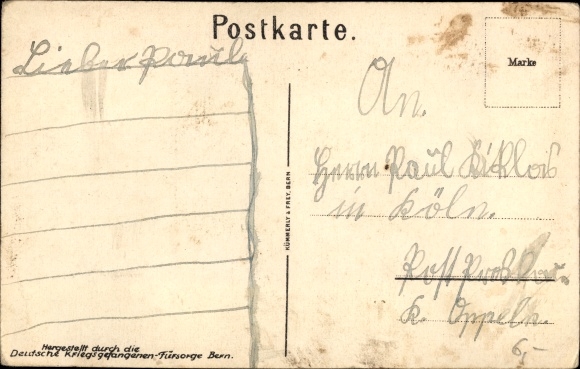 Postkarte.
Marke
Lieber Paul
An.
Herrn Paul
in Köln.
K. Oppeln.
6,-
KÜMMERLY & FREY, BERN
Hergestellt durch die
Deutsche Kriegsgefangenen-Fürsorge Bern.